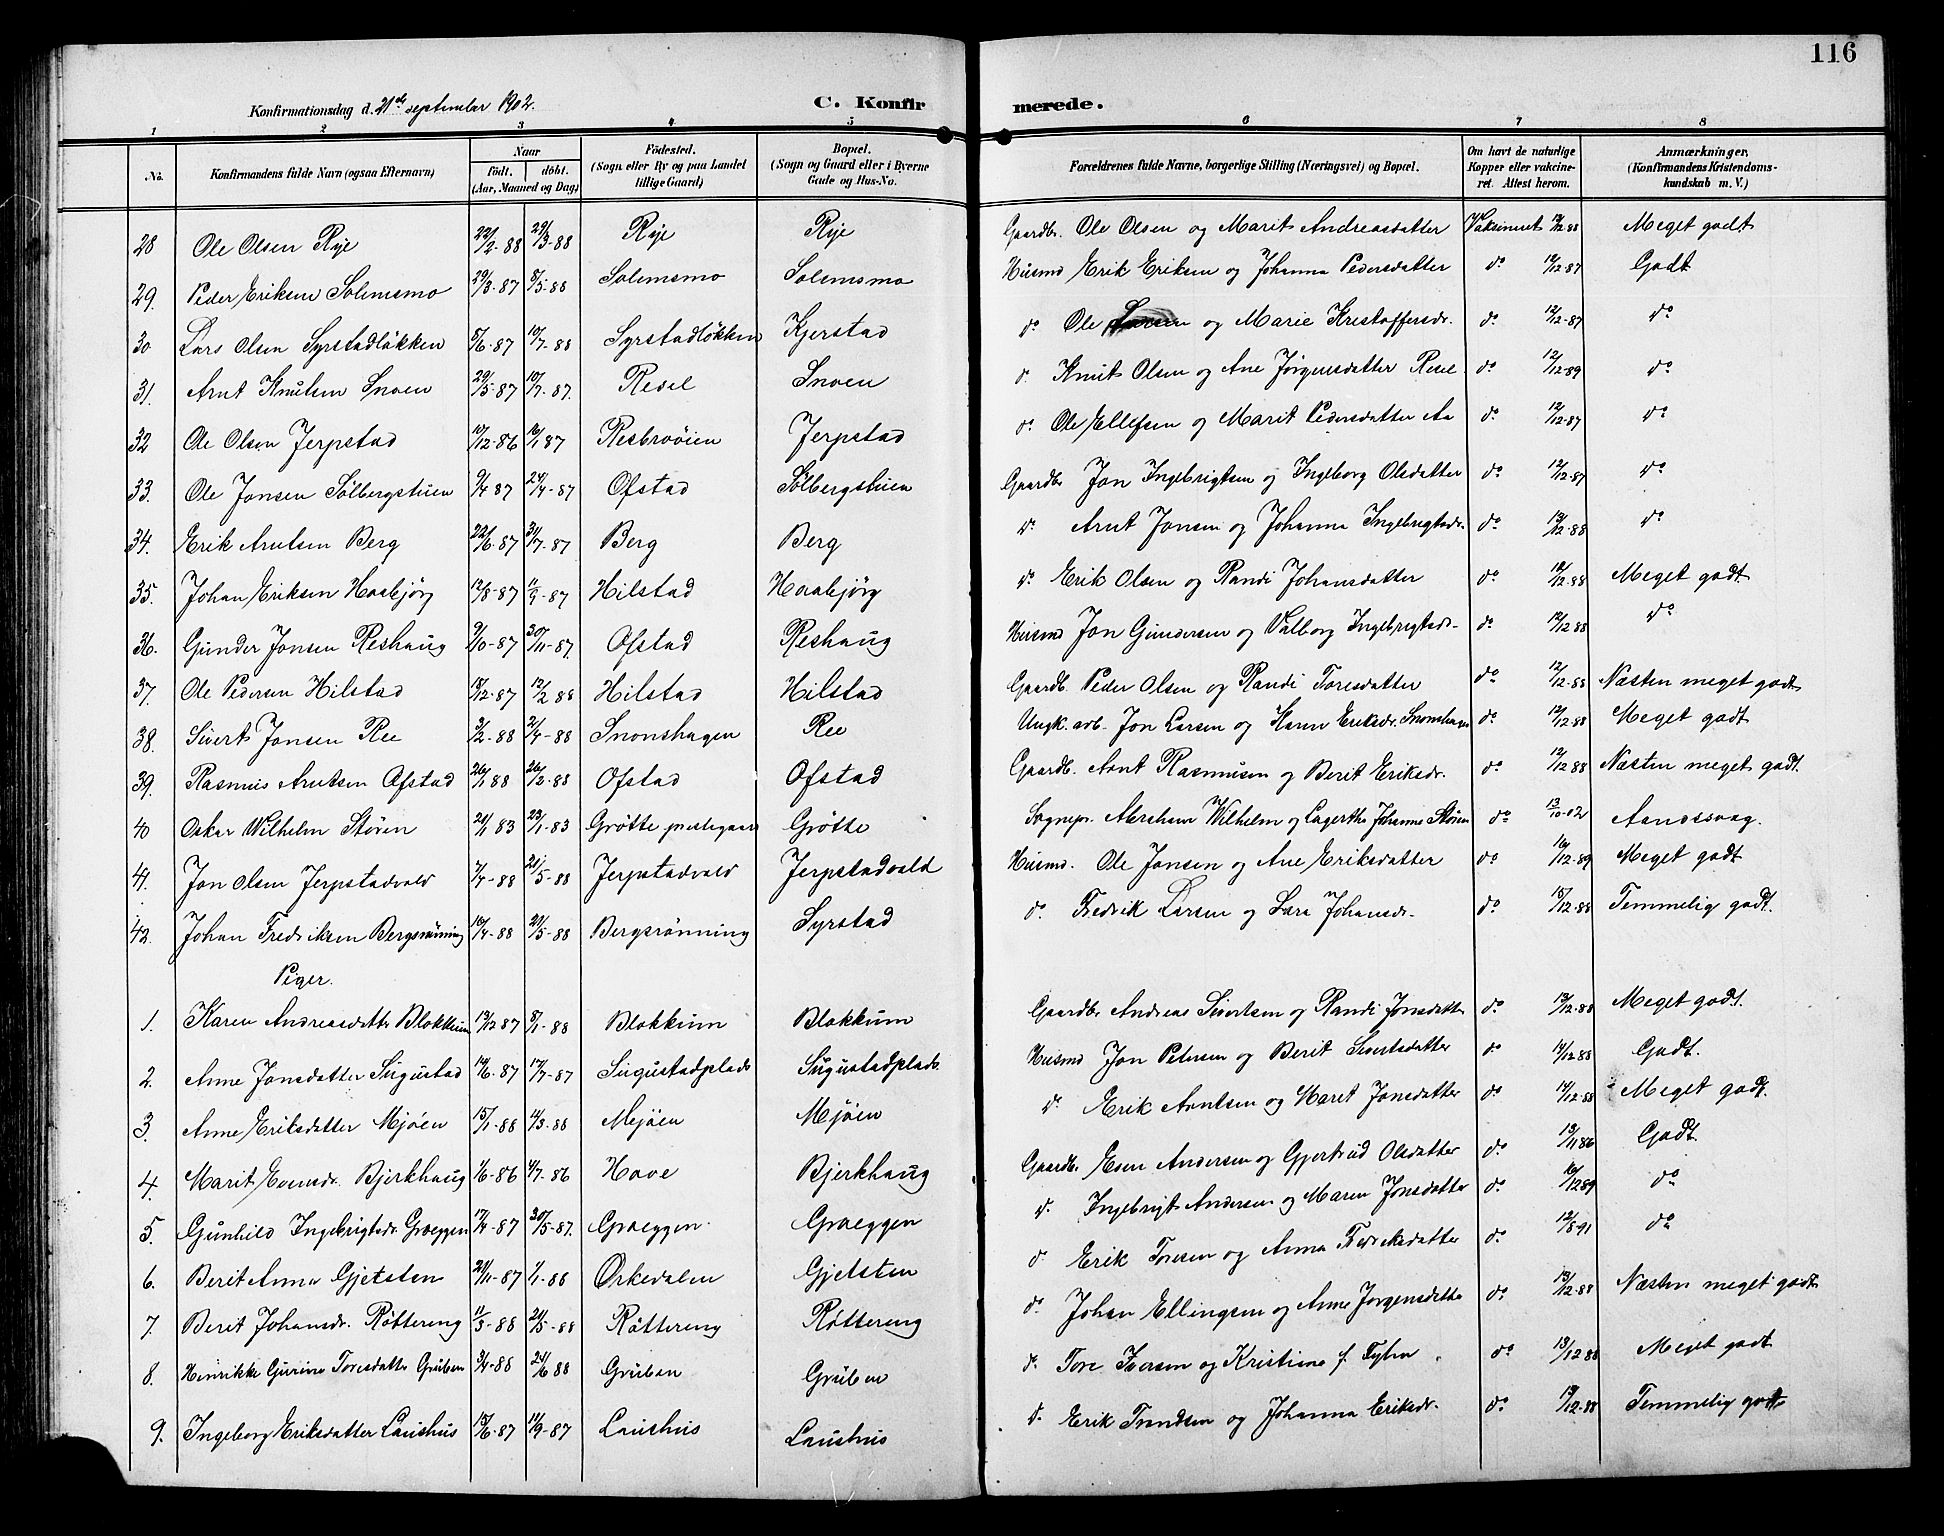 116
Konfirmationsdag d. 21de september 1902.
C. Konfirmerede.
1 2 3 4 5 6 7 8
No. Konfirmandens fulde Navn (ogsaa Efternavn) Naar Födt. döbt. (Aar, Maaned og Dag) Födested. (Sogn eller By og paa Landet tillige Gaard) Bopæl. (Sogn og Gaard eller i Byerne Gade og Hus-No. Forældrenes fulde Navne, borgerlige Stilling (Næringsvei) og Bopæl. Om havt de naturlige Kopper eller vakcineret. Attest herom. Anmærkninger. (Konfirmandens Kristendomskundskab m. V.)
28 Ole Olsen Rye 22/2-88 29/3-88 Rye Rye Gaardbr. Ole Olsen og Marit Andreasdatter Vaksineret 12/12-88 Meget godt
29. Peder Eriksen Solemsmo 29/3-87 8/5-88 Solemsmo Solemsmo Husmd Erik Eriksen og Johanna Pedersdatter do 12/12-87 Godt
30. Lars Olsen Syrstadløkken 5/6-87 10/7-88 Syrstadløkken Kjerstad do Ole Larsen og Marie Kristoffersdr. do 12/12-87 do
31. Arnt Knutsen Snoen 29/5-87 10/7-87. Resel Snoen d. Knut Olsen og Ane Jørgensdatter Resel do 12/12-89 do
32 Ole Olsen Jerpstad 10/12-86 16/1 87 Resbroøien Jerpstad d. Ole Ellefsen og Marit Pedersdatter Aa do 12/12-87 do
33. Ole Jonsen Sølbergstuen 9/4 87 24/4-87 Ofstad Sølbergstuen Gaardbr Jon Ingebrigtsen og Ingeborg Olsdatter do 12/12-87 do
34. Erik Arntsen Berg 22/6-87 31/7-87 Berg Berg do Arnt Jonsen og Johanna Ingebrigtsdr. do 12/12-88 do
35. Johan Eriksen Haabjørg 12/8-87 11/9-87 Hilstad Haabjørg do Erik Olsen og Randi Johansdatter do 12/12-88 Meget godt
36. Gunder Jonsen Reshaug 9/10-87 30/11-87. Ofstad Reshaug Husmd Jon Gundersen og Valborg Ingebrigtsdr. do 12/12 88 do
37. Ole Pedersen Hilstad 18/12-87 12/2 88 Hilstad Hilstad Gaardb. Peder Olsen og Randi Toresdatter do 12/12-88 Næsten meget godt
38. Sivert Jonsen Ree 3/2-88 2/4-88 Snonshagen Ree Ungk. arb. Jon Larsen og Karen Eriksdr. Snonshagen do 12/12-88 Meget godt
39. Rasmus Arntsen Ofstad 26/1 88 26/2-88 Ofstad Ofstad Gaardb. Arnt Rasmusen og Berit Eriksdr. do 12/12 88 Næsten meget godt.
40 Oskar Wilhelm Støren 21/1 83 23/1-83 Grøtte prestegaard Grøtte Sognepr. Abraham Wilhelm og Lagertha Johanna Støren do 13/10-02 Aandssvag.
41. Jon Olsen Jerpstadvald 7/4-88 21/5-88 Jerpstadvald Jerpstadvald Husmd. Ole Jonsen og Ane Eriksdatter do 16/12-89 Meget godt
42. Johan Fredriksen Bergsrønning 16/4-88 21/5-88 Bergsrønning Syrstad d. Fredrik Larsen og Sara Johansdr. do 15/12-88 Temmelig godt.
Piger.
1. Karen Andreasdatter Blokkum 13/12 87 8/1-88 Blokkum Blokkum Gaardbr Andreas Sivertsen og Randi Jonsdatter do 12/12-88 Meget godt.
2. Anne Jonsdatter Sugustad 14/6-87 17/7-87 Sugustadplads Sugustadplads. Husmd Jon Petersen og Berit Sivertsdatter do 14/12 88 Godt.
3. Anne Eriksdatter Mjøen 15/1-88 14/3-88 Mejöen Mejøen do Erik Arntsen og Marit Jonsdatter do 14/12-88 Meget godt.
4. Marit Evensdr. Bjerkhaug 1/6-86 4/7-86 Hove Bjerkhaug Gaardbr. Even Andersen og Gjertrud Olsdatter do 12/11 86 Godt.
5. Gunhild Ingebrigtsdr. Græggen 17/4-87 30/5-87. Græggen. Græggen do Ingebrigt Andersen og Maren Jonsdatter do 16/12 89 do
6. Berit Anna Gjetsten 21/11-87 1/1-88 Orkedalen Gjelsten d. Erik Toresen og Anna Fredriksdatter do 12/8 91 do
7. Berit Johansdr. Røttereng 11/3-88 21/5-88 Røttereng Røttereng do Johan Ellingsen og Anne Jørgensdatter do 13/12-88 Næsten meget godt
8. Henrikke Gurine Toresdatter Gruben 3/4-88 24/6 88 Gruben Gruben d. Tore Iversen og Kristiane f. Tylva do 13/12 88 Meget godt
9. Ingeborg Eriksdatter Laushus 15/6-87 11/9-87 Laushus Laushus d. Erik Trondsen og Johanna Eriksdr. do 12/12-88 Temmelig godt